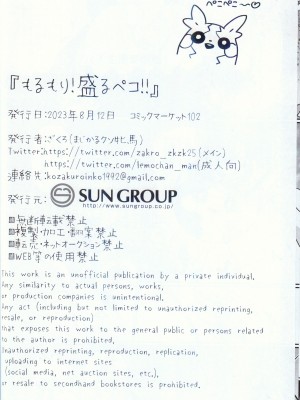 ぺこぺこ〜♡
『もるもり!盛るペコ!!』
発行日:2023年8月12日 コミックマーケット102
発行者:ざくろ(まじかるクソ牝馬)
Twitter:https://twitter.com/zakro_zkzk25(メイン)
https://twitter.com/lemochan_man(成人向)
連絡先:kozakuroinko1992@gmail.com
発行元: SUN GROUP
http://www.sungroup.co.jp/
■無断転載禁止
■複製・加工・翻案禁止
■転売・ネットオークション禁止
■WEB等の使用禁止
This work is an unofficial publication by a private individual.
Any similarity to actual persons, works,
or production companies is unintentional.
Any act (including but not limited to unauthorized reprinting,
resale, or reproduction)
that exposes this work to the general public or persons related
to the author is prohibited.
Unauthorized reprinting, reproduction, replication,
uploading to internet sites
(social media, net auction sites, etc.),
or resale to secondhand bookstores is prohibited.